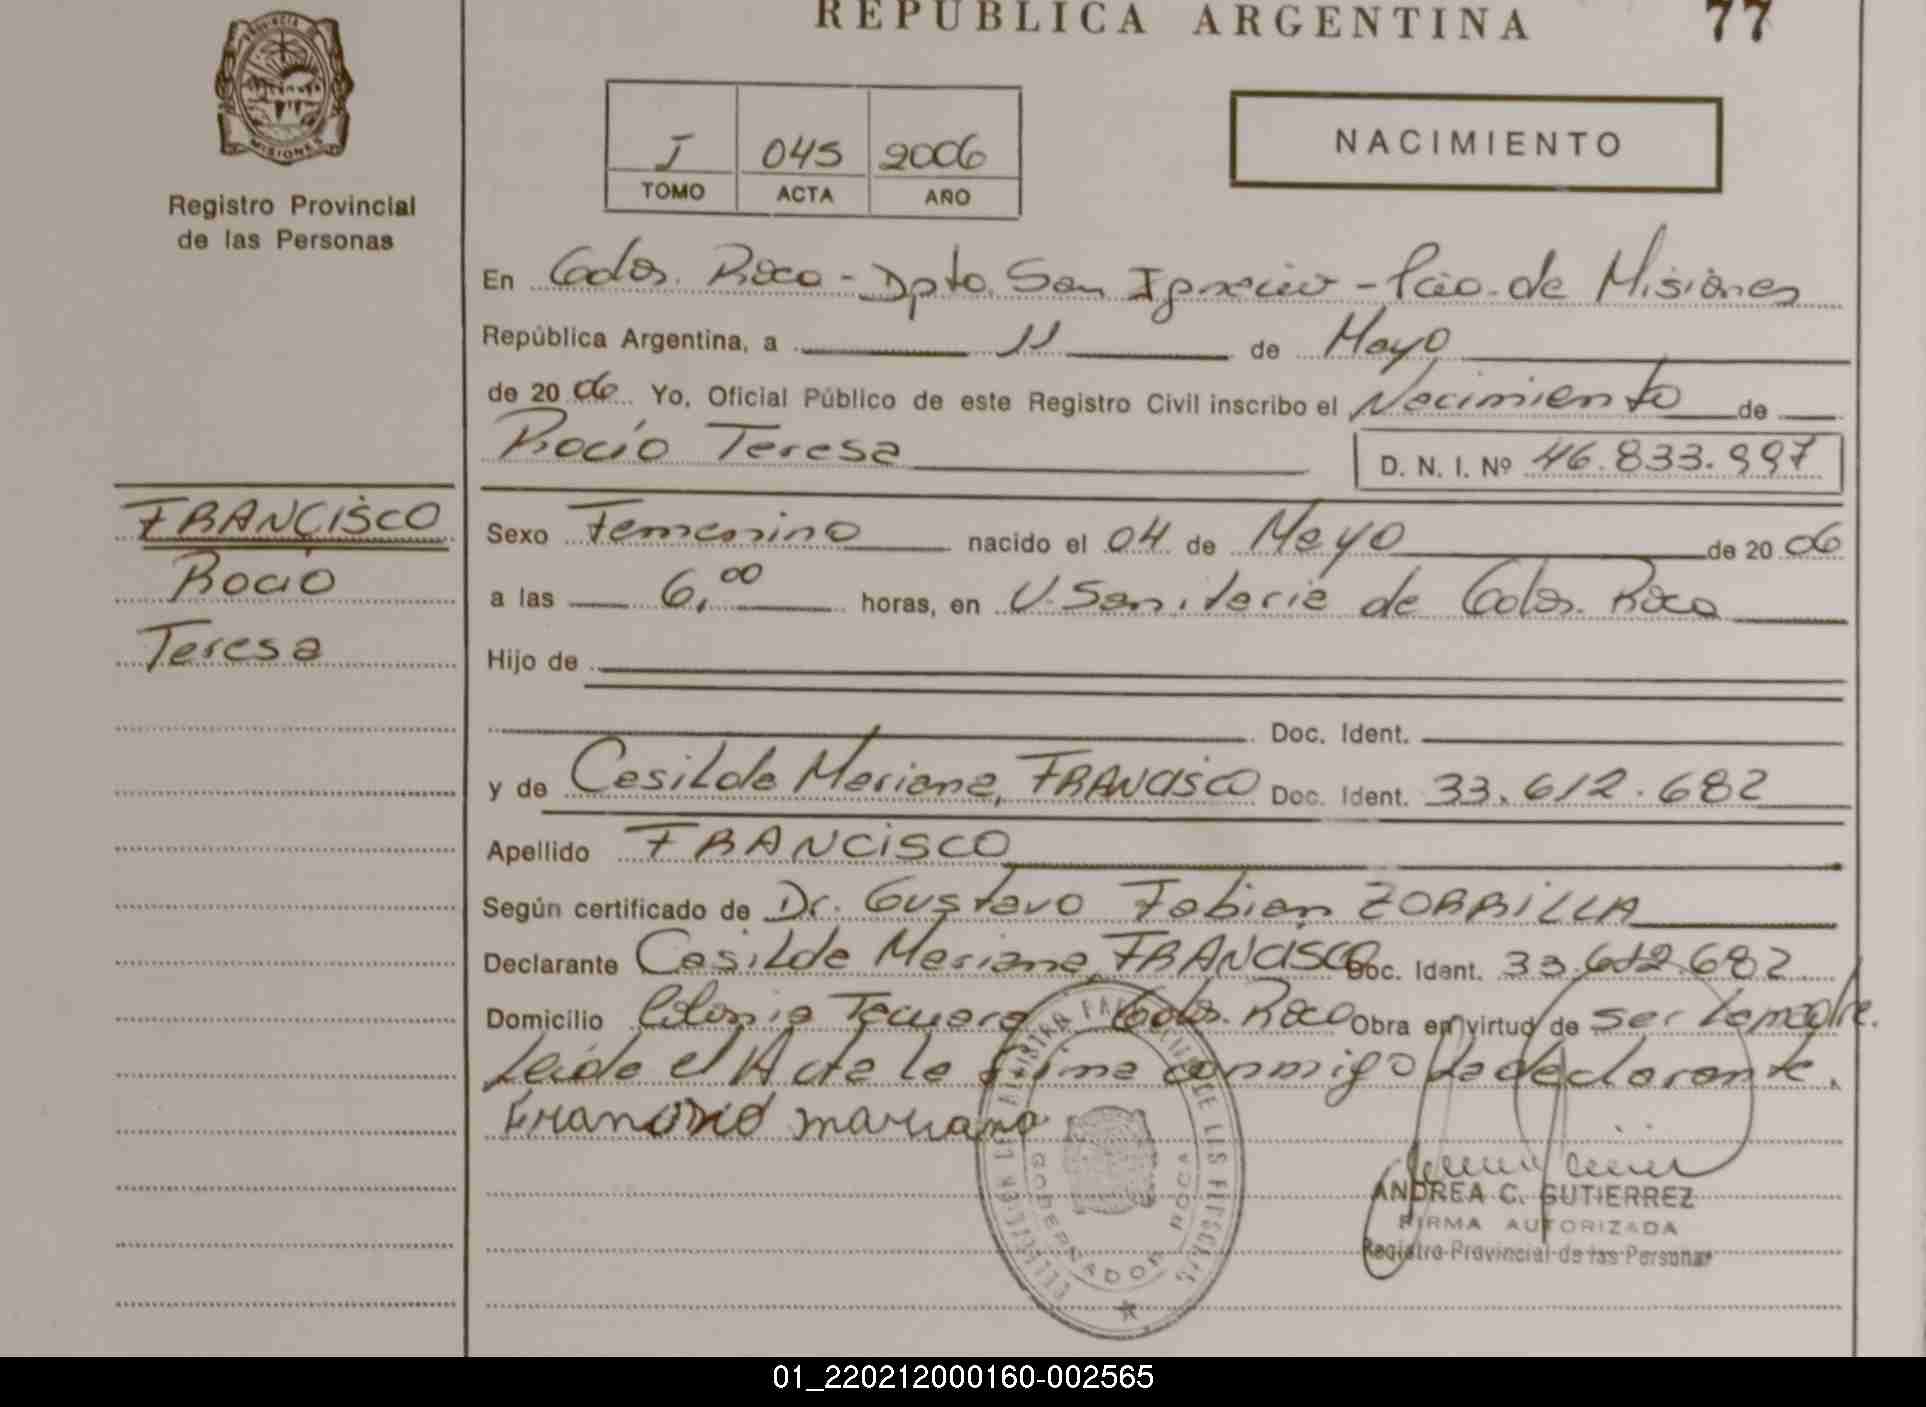 REPUBLICA ARGENTINA
77
PROVINCIA
MISIONES
Registro Provincial
de las Personas
I 045 2006
TOMO ACTA AÑO
NACIMIENTO
En Gdor. Roca - Dpto. San Ignacio - Pcia. de Misiones
República Argentina, a 11 de Mayo
de 2006 Yo, Oficial Público de este Registro Civil inscribo el Nacimiento de
Rocío Teresa
D. N. I. Nº 46.833.997
FRANCISCO
Rocío
Teresa
Sexo Femenino nacido el 04 de Mayo de 2006
a las 6,00 horas, en U. Sanitaria de Gdor. Roca
Hijo de
Doc. Ident.
y de Casilda Mariana, FRANCISCO Doc. Ident. 33.612.682
Apellido FRANCISCO
Según certificado de Dr. Gustavo Fabian ZORRILLA
Declarante Casilda Mariana, FRANCISCO Doc. Ident. 33.612.682
Domicilio Colonia Tacuara Gdor. Roca Obra en virtud de ser la madre.
Leída el Acta la firma conmigo la declarante.
Francisco mariana
GOBERNADOR ROCA
ANDREA C. GUTIERREZ
FIRMA AUTORIZADA
Registro Provincial de las Personas
01_220212000160-002565